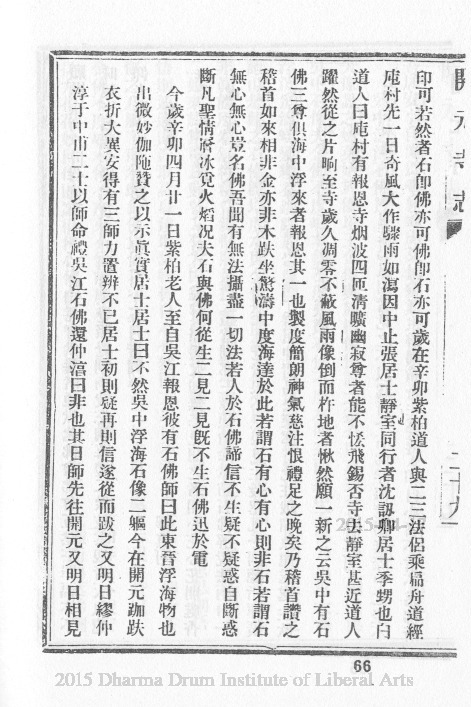 開元寺志
二十九
印可若然者石卽佛亦可佛卽石亦可歲在辛卯紫柏道人與二三法侶乘扁舟道經
庉村先一日奇風大作驟雨如瀉因中止張居士靜室同行者沈認卿居士季甥也白
道人曰庉村有報恩寺烟波四匝清曠幽寂尊者能不恡飛錫否寺去靜室甚近道人
躍然從之片晌至寺歲久凋零不蔽風雨像倒而杵地者愀然願一新之云吳中有石
佛三尊俱海中浮來者報恩其一也製度簡朗神氣慈注恨禮足之晚矣乃稽首讚之
稽首如來相非金亦非木趺坐驚濤中度海達於此若謂石有心有心則非石若謂石
無心無心豈名佛吾聞有無法攝盡一切法若人於石佛諦信不生疑不疑惑自斷惑
斷凡聖情將冰覓火熖况夫石與佛何從生二見二見旣不生石佛迅於電
今歲辛卯四月廿一日紫柏老人至自吳江報恩彼有石佛師曰此東晉浮海物也
出微妙伽陁贊之以示眞實居士居士曰不然吳中浮海石像二軀今在開元跏趺
衣折大異安得有三師力置辨不已居士初則疑再則信遂從而跋之又明日繆仲
淳于中甫二十以師命禮吳江石佛還仲淳曰非也其日師先往開元又明日相見
66
2015 Dharma Drum Institute of Liberal Arts